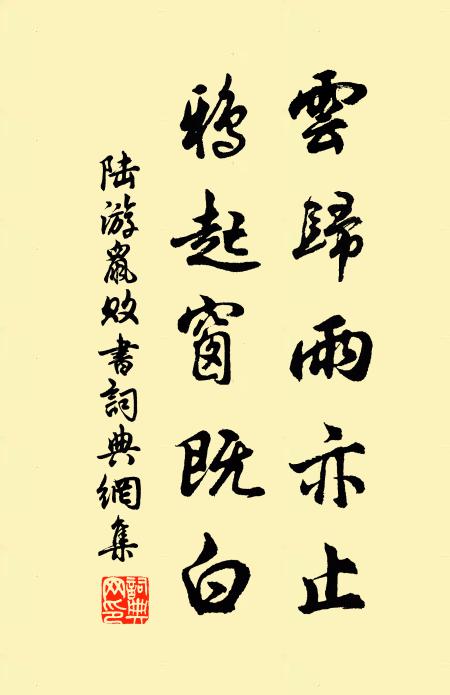 雲歸雨亦止
鴉起窗既白
陸游鼠敗書詞典網集
詞典網印